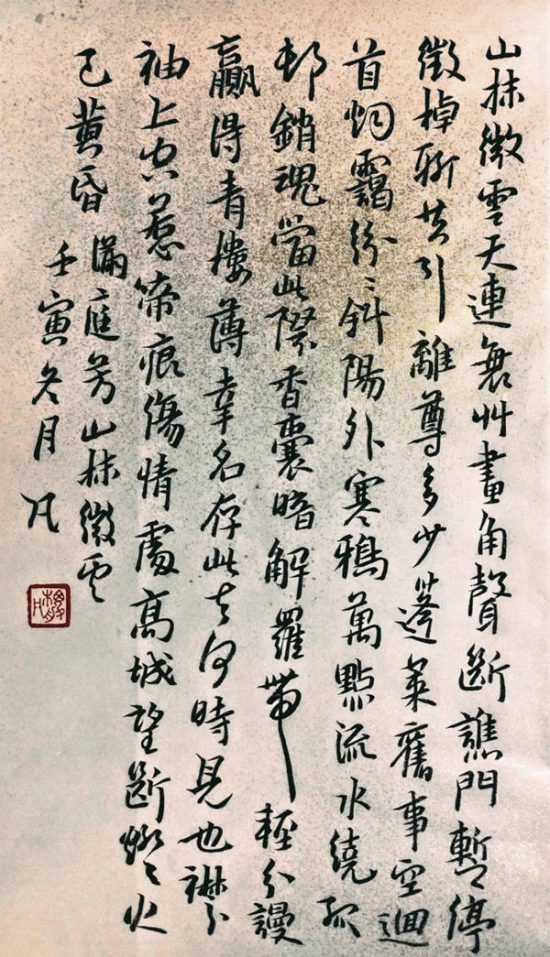 山抹微雲天連衰艸畫角聲斷譙門暫停
徵棹聊共引離尊多少蓬萊舊事空迴
首烟靄紛〻斜陽外寒鴉萬點流水繞孤
邨銷魂當此際香囊暗解羅帶輕分謾
贏得青樓薄幸名存此去何時見也襟
袖上空惹啼痕傷情處高城望斷燈火
已黃昏 滿庭芳山抹微雲
壬寅冬月 凡